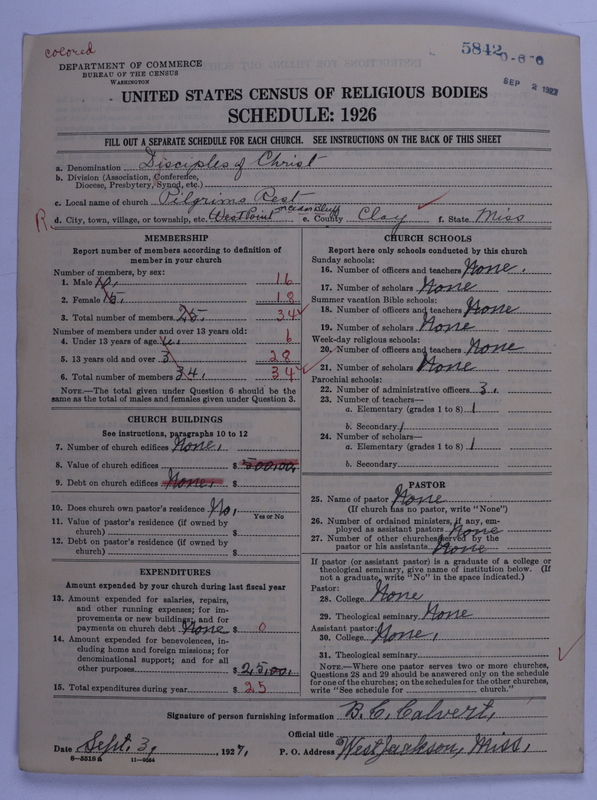 colored
5842
0-6
SEP 2 1927
DEPARTMENT OF COMMERCE
BUREAU OF THE CENSUS
WASHINGTON
UNITED STATES CENSUS OF RELIGIOUS BODIES
SCHEDULE: 1926
FILL OUT A SEPARATE SCHEDULE FOR EACH CHURCH. SEE INSTRUCTIONS ON THE BACK OF THIS SHEET
a. Denomination Disciples of Christ
b. Division (Association, Conference,
Diocese, Presbytery, Synod, etc.)
c. Local name of church Pilgrims Rest
R. d. City, town, village, or township, etc. West Point near Cedar Bluff e. County Clay f. State Miss
MEMBERSHIP
Report number of members according to definition of
member in your church
Number of members, by sex:
1. Male 10, 16
2. Female 15, 18
3. Total number of members 25. 34
Number of members under and over 13 years old:
4. Under 13 years of age 6
5. 13 years old and over 3 28
6. Total number of members 34. 34
NOTE.—The total given under Question 6 should be the
same as the total of males and females given under Question 3.
CHURCH BUILDINGS
See instructions, paragraphs 10 to 12
7. Number of church edifices None,
8. Value of church edifices $ 500,00,
9. Debt on church edifices None, $
10. Does church own pastor's residence No,
Yes or No
11. Value of pastor's residence (if owned by
church) $
12. Debt on pastor's residence (if owned by
church) $
EXPENDITURES
Amount expended by your church during last fiscal year
13. Amount expended for salaries, repairs,
and other running expenses; for im-
provements or new buildings; and for
payments on church debt None $ 0
14. Amount expended for benevolences, in-
cluding home and foreign missions; for
denominational support; and for all
other purposes $ 25,00,
15. Total expenditures during year $ 25
CHURCH SCHOOLS
Report here only schools conducted by this church
Sunday schools:
16. Number of officers and teachers None.
17. Number of scholars None
Summer vacation Bible schools:
18. Number of officers and teachers None
19. Number of scholars None
Week-day religious schools:
20. Number of officers and teachers None
21. Number of scholars None
Parochial schools:
22. Number of administrative officers 3.
23. Number of teachers—
a. Elementary (grades 1 to 8) 1
b. Secondary 1
24. Number of scholars—
a. Elementary (grades 1 to 8) 1
b. Secondary
PASTOR
25. Name of pastor None
(If church has no pastor, write "None")
26. Number of ordained ministers, if any, em-
ployed as assistant pastors None
27. Number of other churches served by the
pastor or his assistants None
If pastor (or assistant pastor) is a graduate of a college or
theological seminary, give name of institution below. (If
not a graduate, write "No" in the space indicated.)
Pastor:
28. College None
29. Theological seminary None
Assistant pastor:
30. College None,
31. Theological seminary
NOTE.—Where one pastor serves two or more churches,
Questions 28 and 29 should be answered only on the schedule
for one of the churches; on the schedules for the other churches,
write "See schedule for church."
Signature of person furnishing information B. C. Calvert,
Official title
Date Sept. 3, 1927, P. O. Address West Jackson, Miss,
6-5518a 11-9084